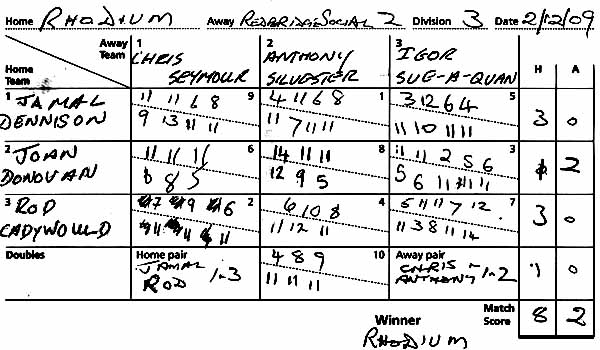 Home RHODIUM Away REDBRIDGE SOCIAL 2 Division 3 Date 2/12/09
Away Team 1 CHRIS SEYMOUR 2 ANTHONY SILVESTER 3 IGOR SUE-A-QUAN H A
Home Team
1 JAMAL DENNISON 11 11 6 8 9 4 11 6 8 1 3 12 6 4 5 3 0
9 13 11 11 11 7 11 11 11 10 11 11
2 JOAN DONOVAN 11 11 11 6 14 11 11 8 11 11 2 5 6 3 1 2
6 8 5 12 9 5 5 6 11 11 11
3 ROD CADYWOULD 7 9 6 2 6 10 8 4 5 11 11 7 12 7 3 0
11 11 11 11 12 11 11 3 8 11 14
Doubles Home pair JAMAL ROD 1-3 4 8 9 10 Away pair CHRIS - ANTHONY 1-2 1 0
11 11 11
Match Score 8 2
Winner
RHODIUM